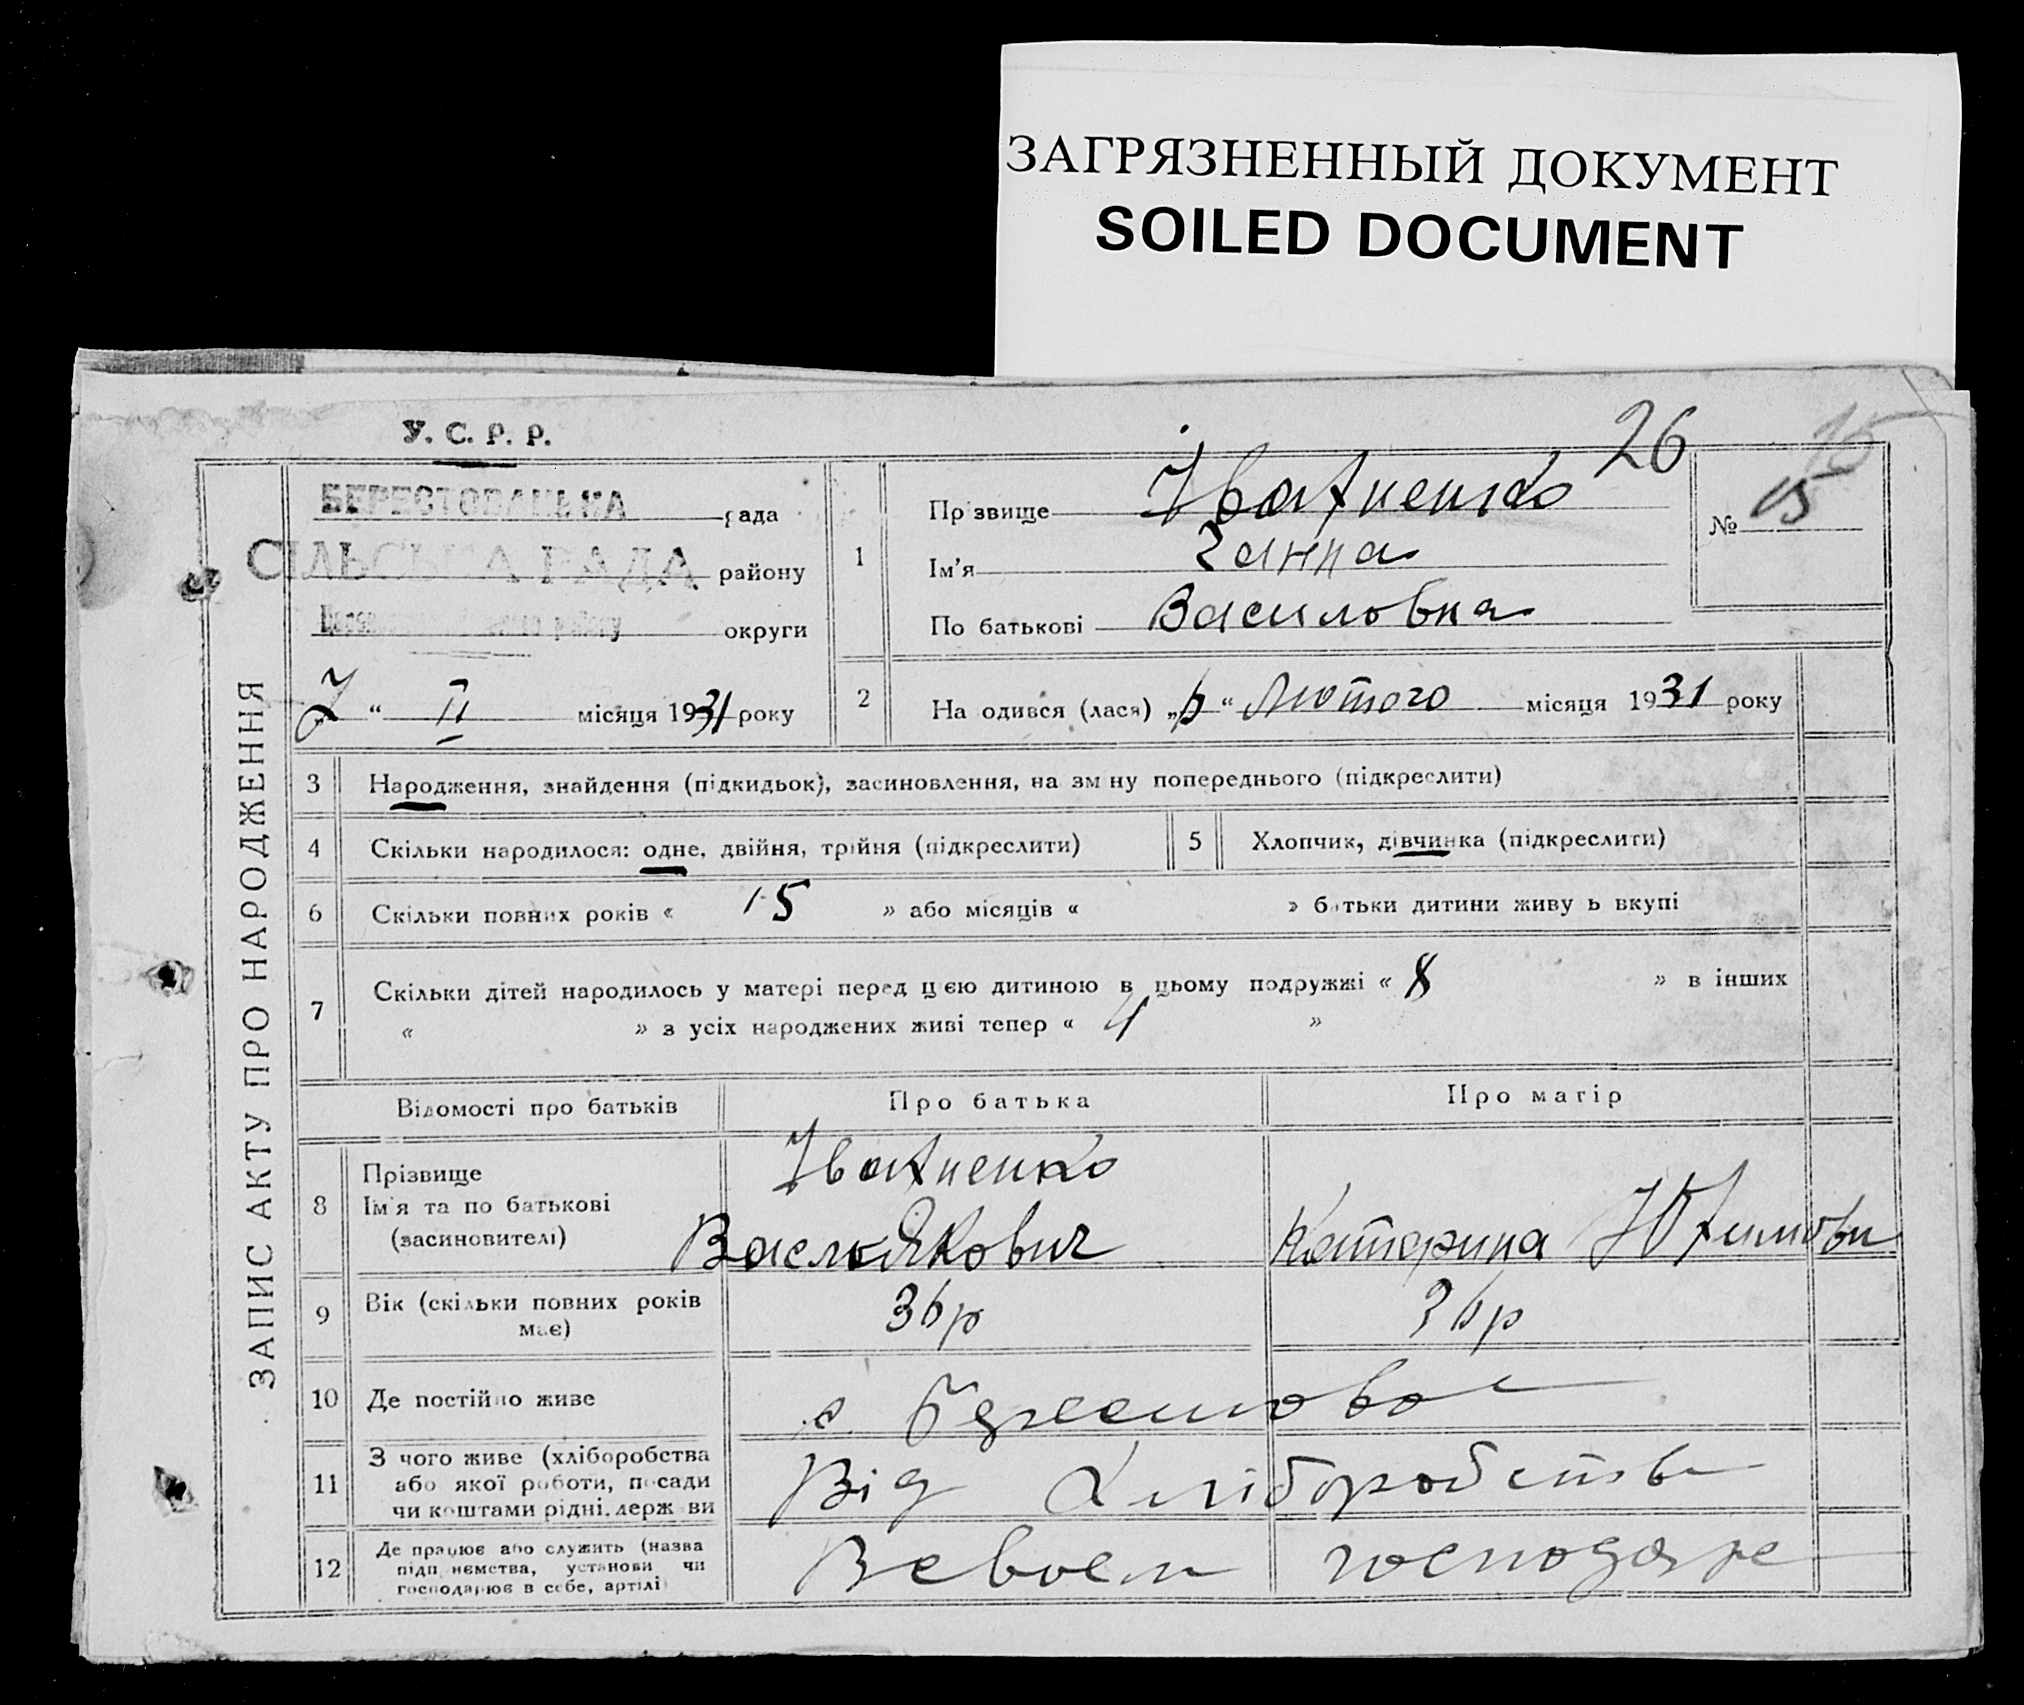 ЗАГРЯЗНЕННЫЙ ДОКУМЕНТ
SOILED DOCUMENT
У. С. Р. Р.
26
15
БЕРЕСТОВАНЬКА рада
СІЛЬСЬКА РАДА району
району округи
7 “ II місяця 1931 року
1
Прізвище Івахненко
Ім'я Ганна
По батькові Василовна
№ 15
2
На одився (лася) „6 “ Лютого місяця 1931 року
ЗАПИС АКТУ ПРО НАРОДЖЕННЯ
3 Народження, знайдення (підкидьок), засиновлення, на зм ну попереднього (підкреслити)
4 Скільки народилося: одне, двійня, трійня (підкреслити)
5 Хлопчик, дівчинка (підкреслити)
6 Скільки повних років « 15 » або місяців « » батьки дитини живу ь вкупі
7 Скільки дітей народилось у матері перед цією дитиною в цьому подружжі « 8 » в інших
« » з усіх народжених живі тепер « 4 »
Відомості про батьків Про батька Про матір
8 Прізвище
Ім'я та по батькові
(засиновителі)
Івахненко
Василь Якович Катарина Юхимовн
9 Вік (скільки повних років
має)
36р 36р
10 Де постійно живе с. Берестова
11 З чого живе (хліборобства
або якої роботи, посади
чи коштами рідні, держави
Від Хліборобств
12 Де працює або служить (назва
підп иємства, установи чи
господарює в себе, артілі)
В своем господаре